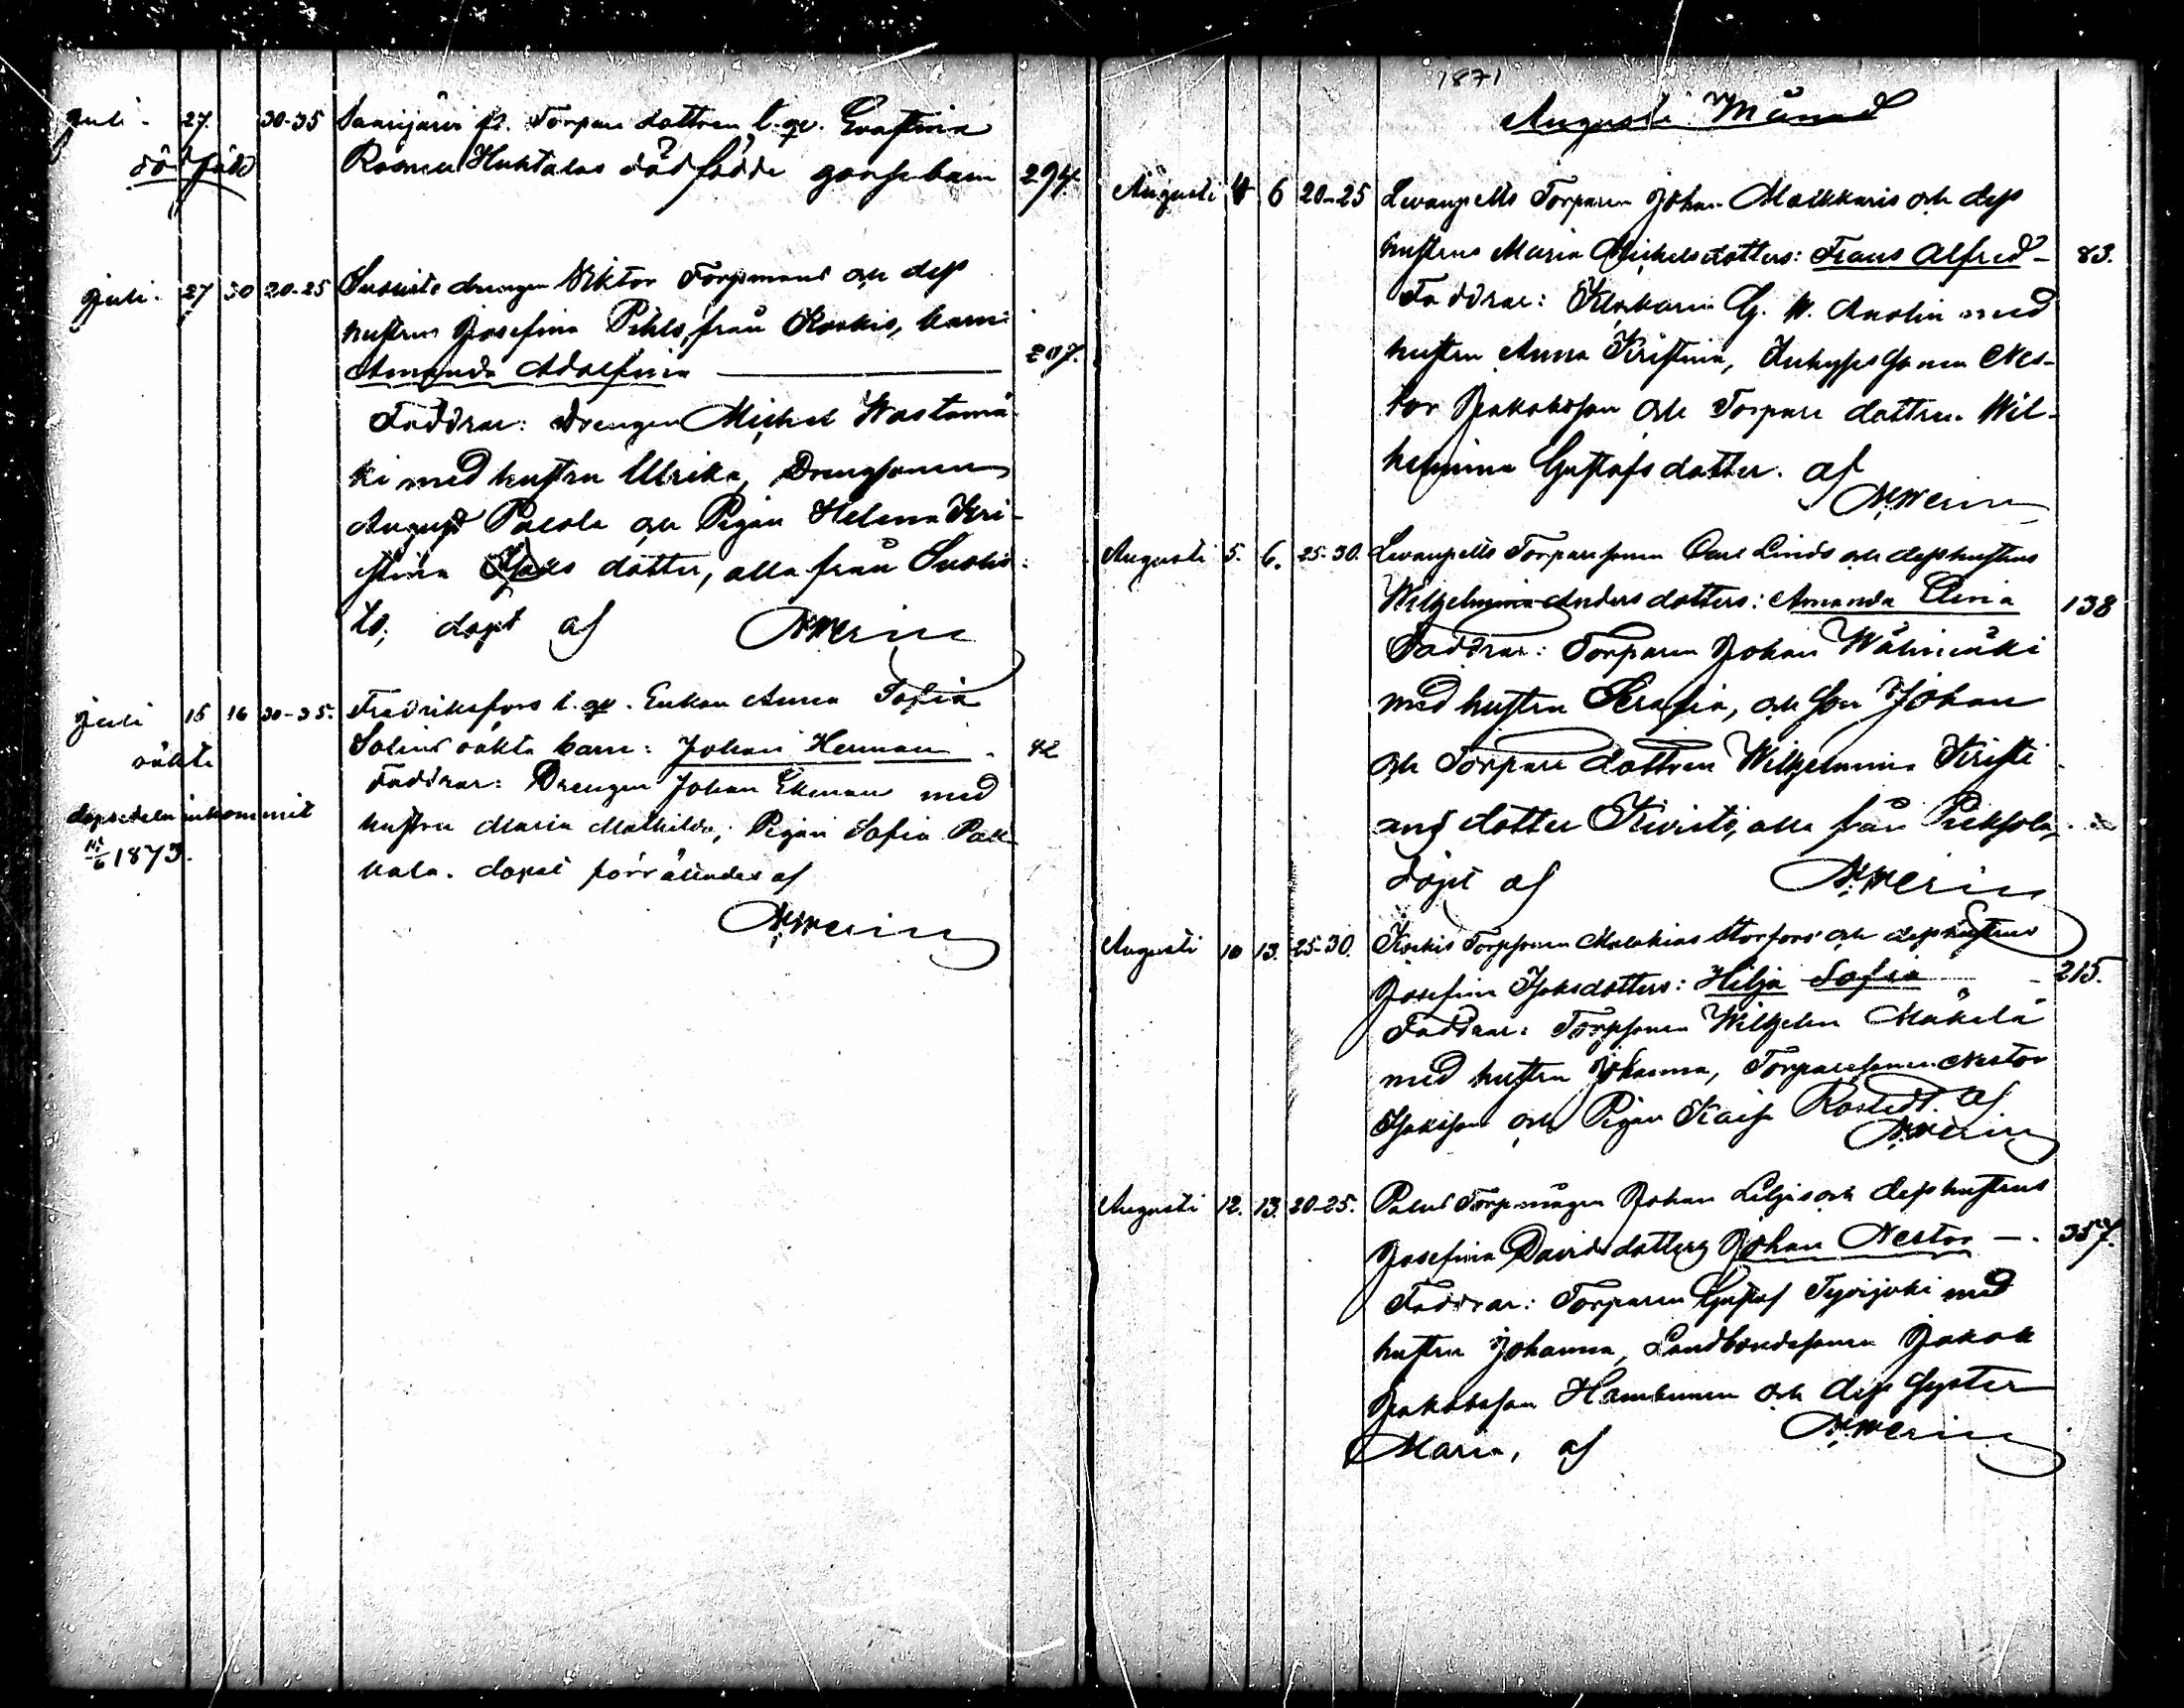 Juli. 27. 30-35 Saarijärvi Torpare dottren l. qv. Evastina
dödfödd Rosina Huhtalas dödfödde gossebarn 294.
Juli. 27 30 20-25 drengen Viktor Forssmans och dess
hustrus Josefina Pihls, från Koskis, barn:
Amanda Adolfina 207.
Faddrar: Drengen Michel Wastamä
ki med hustru Ulrika, Drengsonen
August och Pigan Helena Kri-
stina Isaks dotter, alla från Suokis
to, döpt af
Juli 15 16 30-35. Fredriksfors l. qv. Enkan Anna Sofia
Solins oäkta barn: Johan Herman 42
oäkta
Faddrar: Drengen Johan Ekman med
dopsedeln inkommit
hustru Maria Mathilda, Pigan Sofia Pak
1873.
kala. döpet förrättades af
1871
Augusti Månad
Augusti 4 6 20-25 Levanpelts Torparen Johan Malkkaris och dess
hustrus Maria Michelsdotters: Frans Alfred - 83.
Faddrar: Klockaren G. W. med
hustru Anna Kristina, Nes-
tor Jakobsson och Torpare dottren Wil-
helmina Gustafs dotter. af
Augusti 5. 6. 25-30. Levanpelts Torparesonen Carl Linds och dess hustrus
Wilhelmina Anders dotters: Amanda Elina 138
Faddrar: Torparen Johan Wälimäki
med hustru Serafia, och Son Johan
och Torpare dottren Wilhelmina Kristi
ans dotter Kivistö, alla från Piekkola,
döpt af
Augusti 10 13. 25-30. Koskis Torpsonen Malakias Storfors och dess hustrus
Josefina Isaksdotters: Hilja Sofia - 215.
Faddrar: Torpsonen Wilhelm Mäkelä
med hustru Johanna, Torparesonen Nestor
Isaksson och Pigan Kaisa Rostedt. af
Augusti 12. 13. 20-25. Palus Torpmågen Johan Liljas och dess hustrus
Josefina Davidsdotters Johan Nestor - 357.
Faddrar: Torparen Gustaf Tyvijoki med
hustru Johanna, Landbondesonen Jakob
Jakobsson och dess Syster
Maria, af